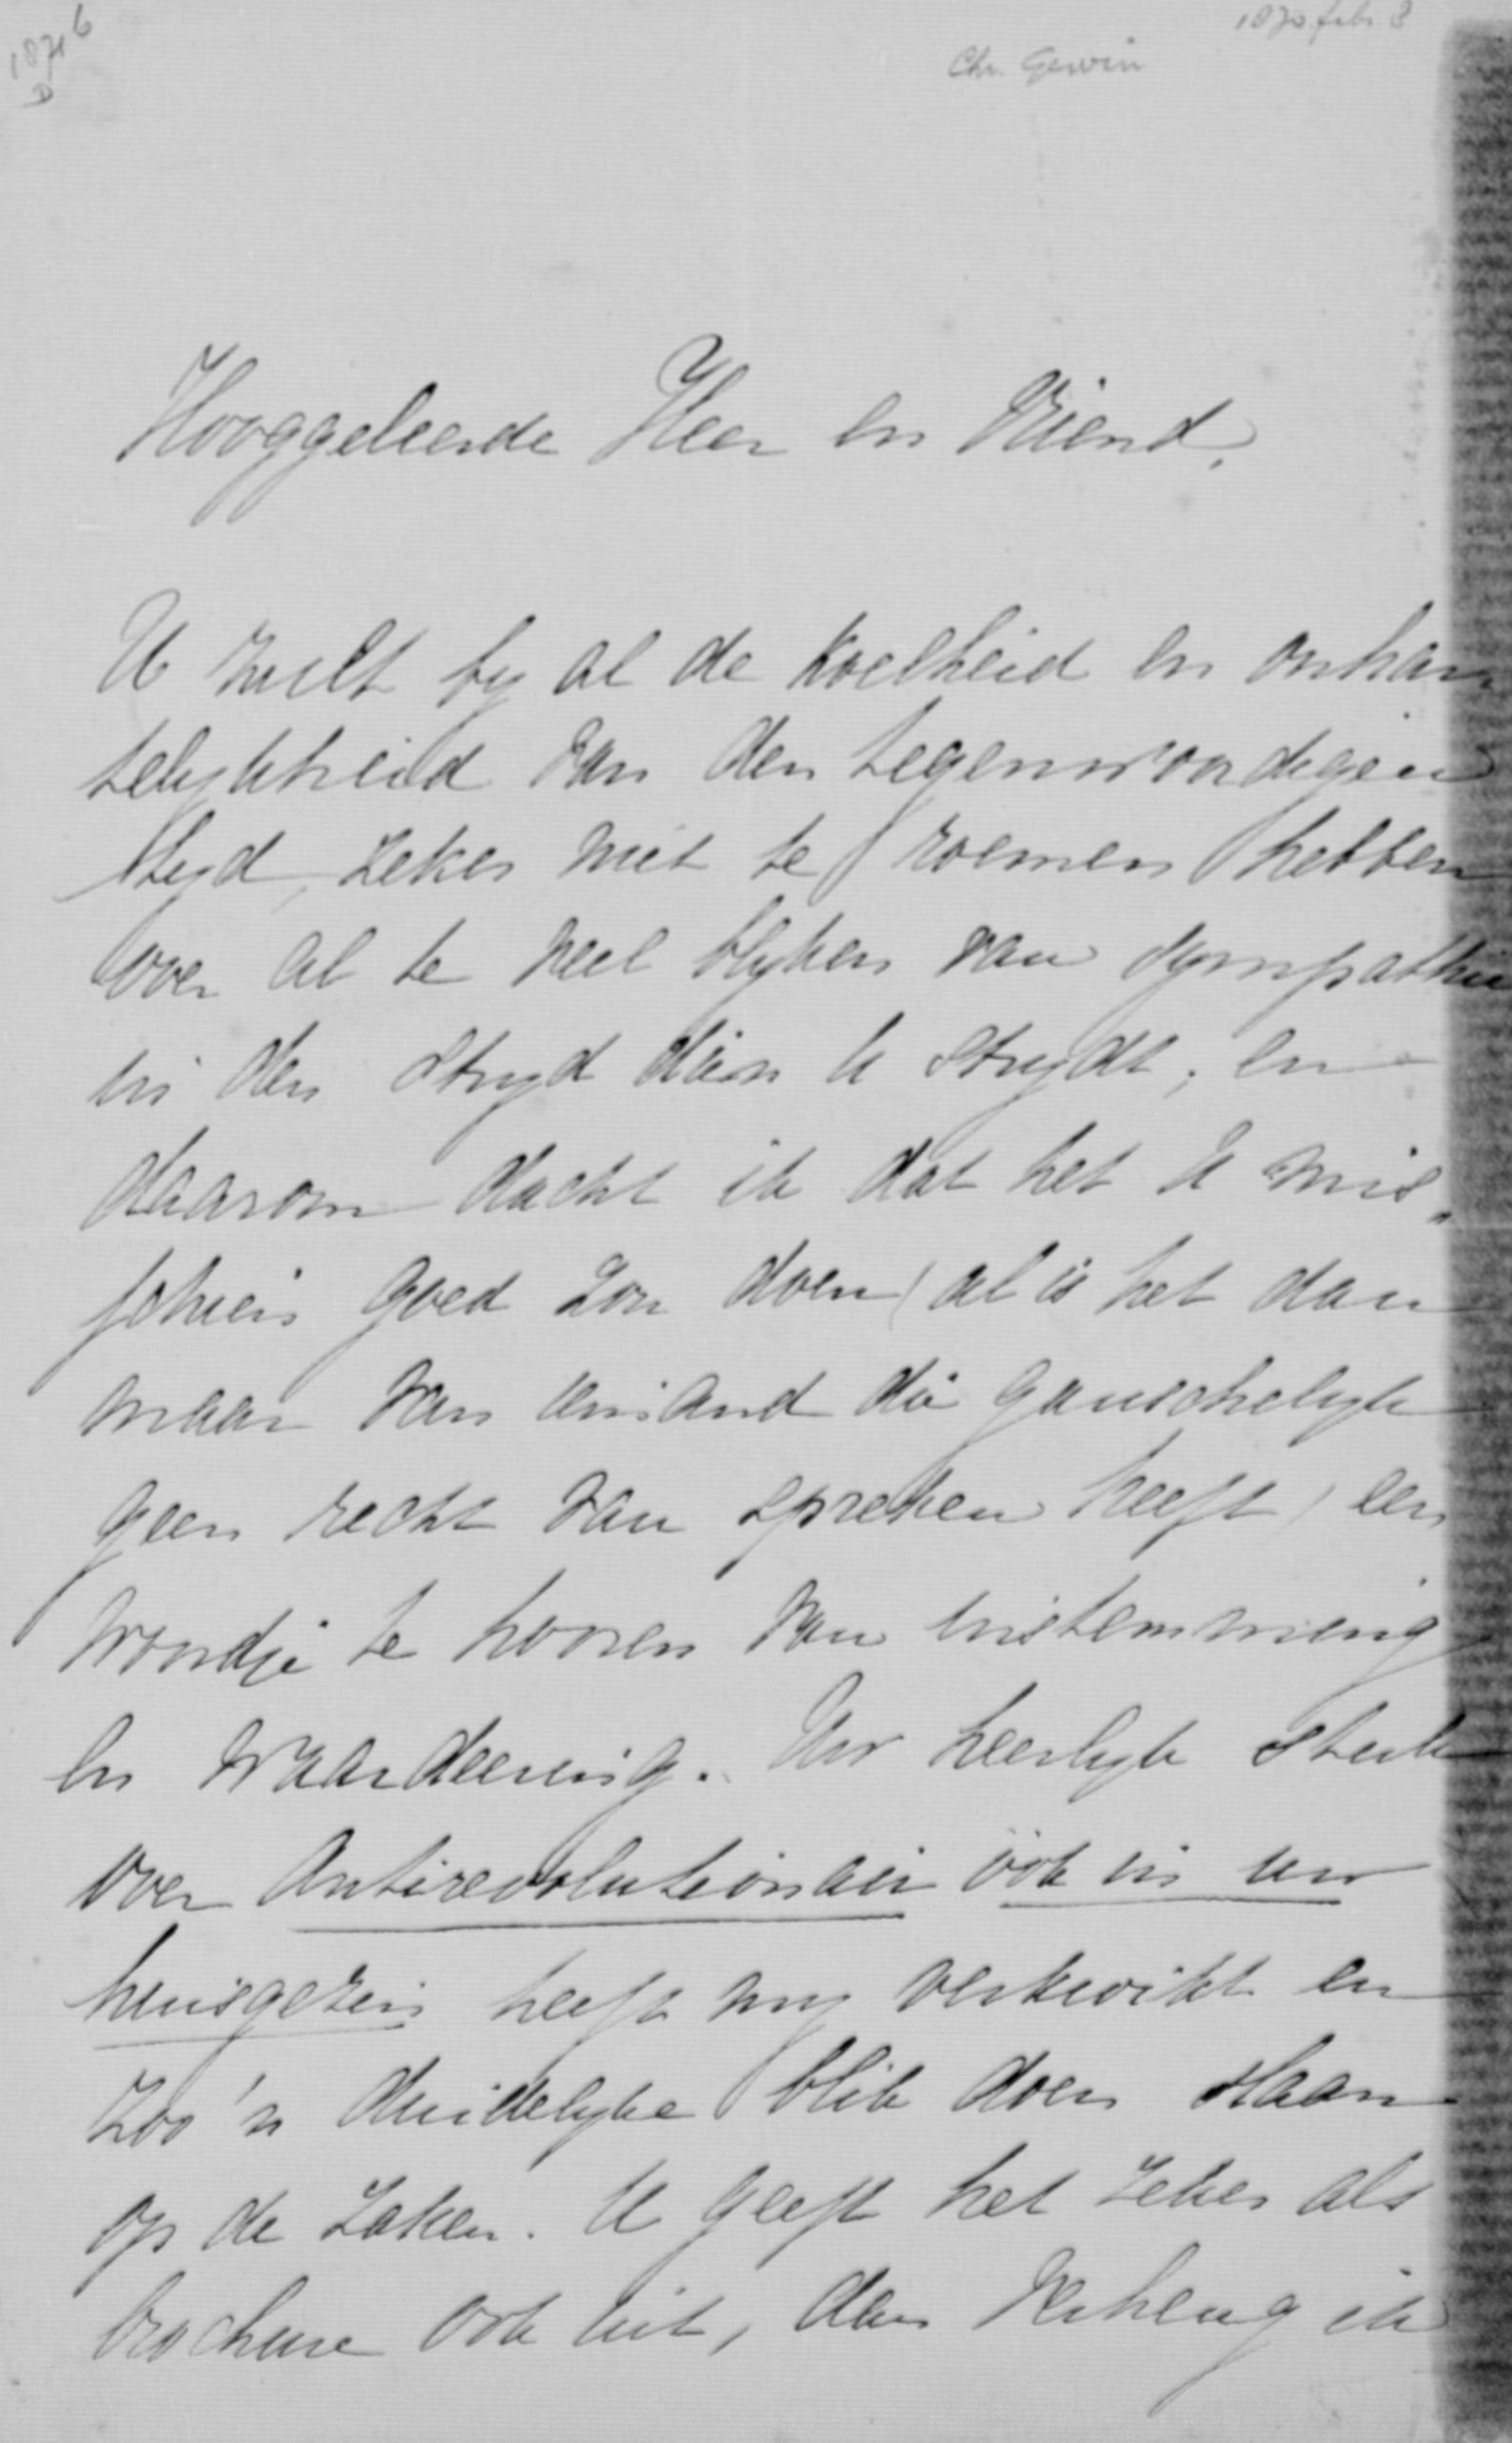 1871 b
D
Chr. Gewin
Hooggeleerde Heer en Vriend,
U zult by al de koelheid en onhar
telykheid van den tegenwoordigen
tyd, zeker niet te roemen hebben
over al te veel blyken van sympathie
in den stryd dien U strydt, en
daarom dacht ik dat het U mis„
schien goed zou doen (al is het dan
maar van iemand die ganschelyk
geen recht van spreken heeft) een
woordje te hooren van instemming
en waardeering. Uw heerlyk stuk
over Antirevolutionair óók in uw
huisgezin heeft my verkwikt en
zoo'n duidelyke blik doen slaan
op de zaken. U geeft het zeker als
brochure ook uit, dan verheug ik